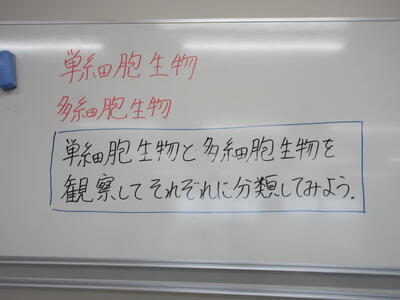 単細胞生物
多細胞生物
単細胞生物と多細胞生物を
観察してそれぞれに分類してみよう。